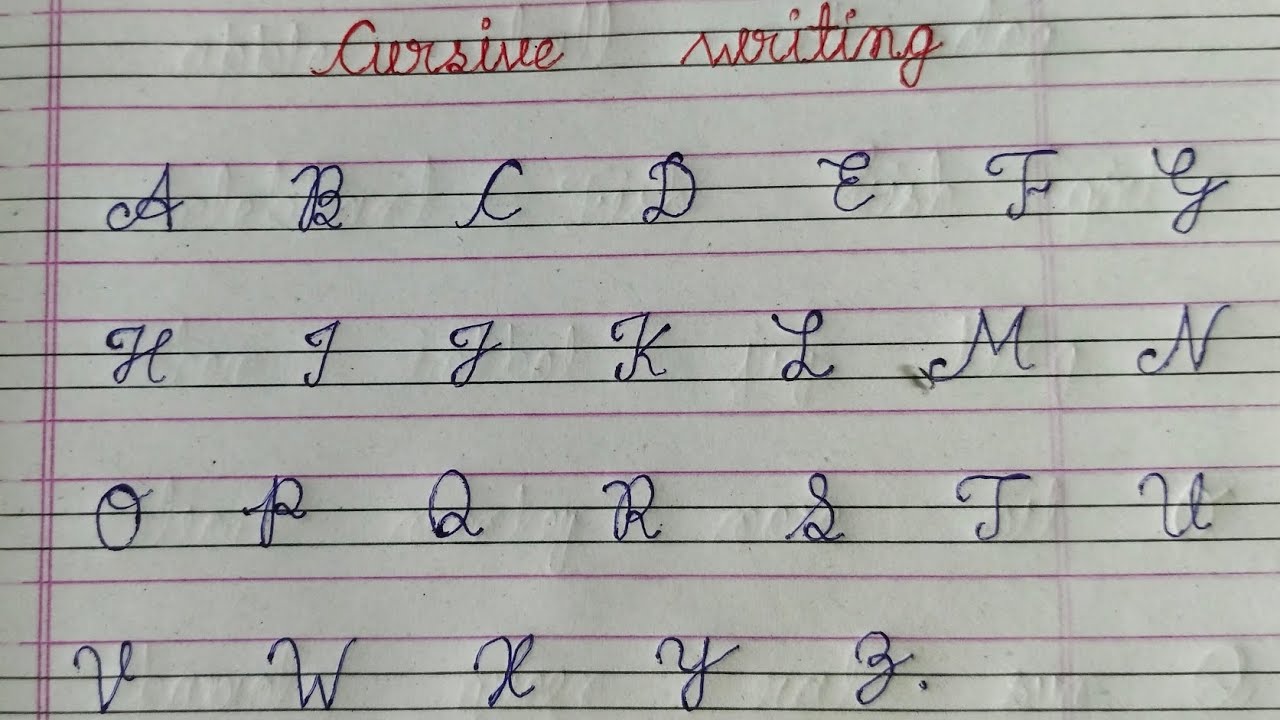 Cursive writing
A B C D E F G
H I J K L M N
O P Q R S T U
V W X Y Z.